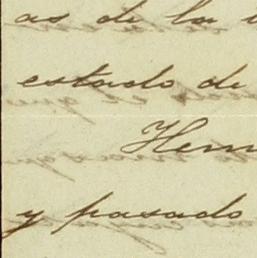 as de la
estado de
Hem
y pasado